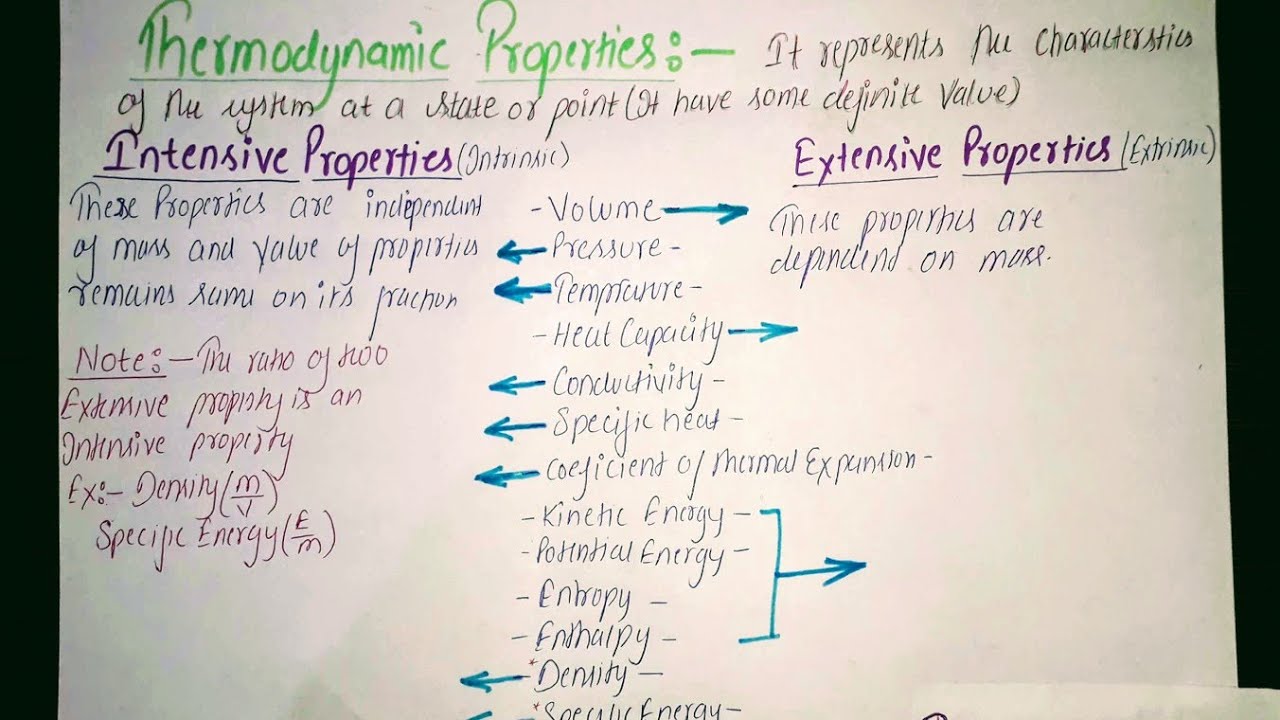 Thermodynamic Properties:- It represents the characterstics
of the system at a state or point (It have some definite value)
Intensive Properties (Intrinsic)
These Properties are independent
of mass and value of properties
remains same on its fraction
Note:- The ratio of two
Extensive property is an
Intensive property
Ex:- Density (m/V)
Specific Energy (E/m)
- Volume →
← Pressure -
← Temprature -
- Heat Capacity →
← Conductivity -
← Specific heat -
← Coeficient of Thermal Expansion -
- Kinetic Energy -
- Potential Energy -
- Entropy -
- Enthalpy -
← *Density -
← *Specific Energy -
Extensive Properties (Extrinsic)
These properties are
dependend on mass.